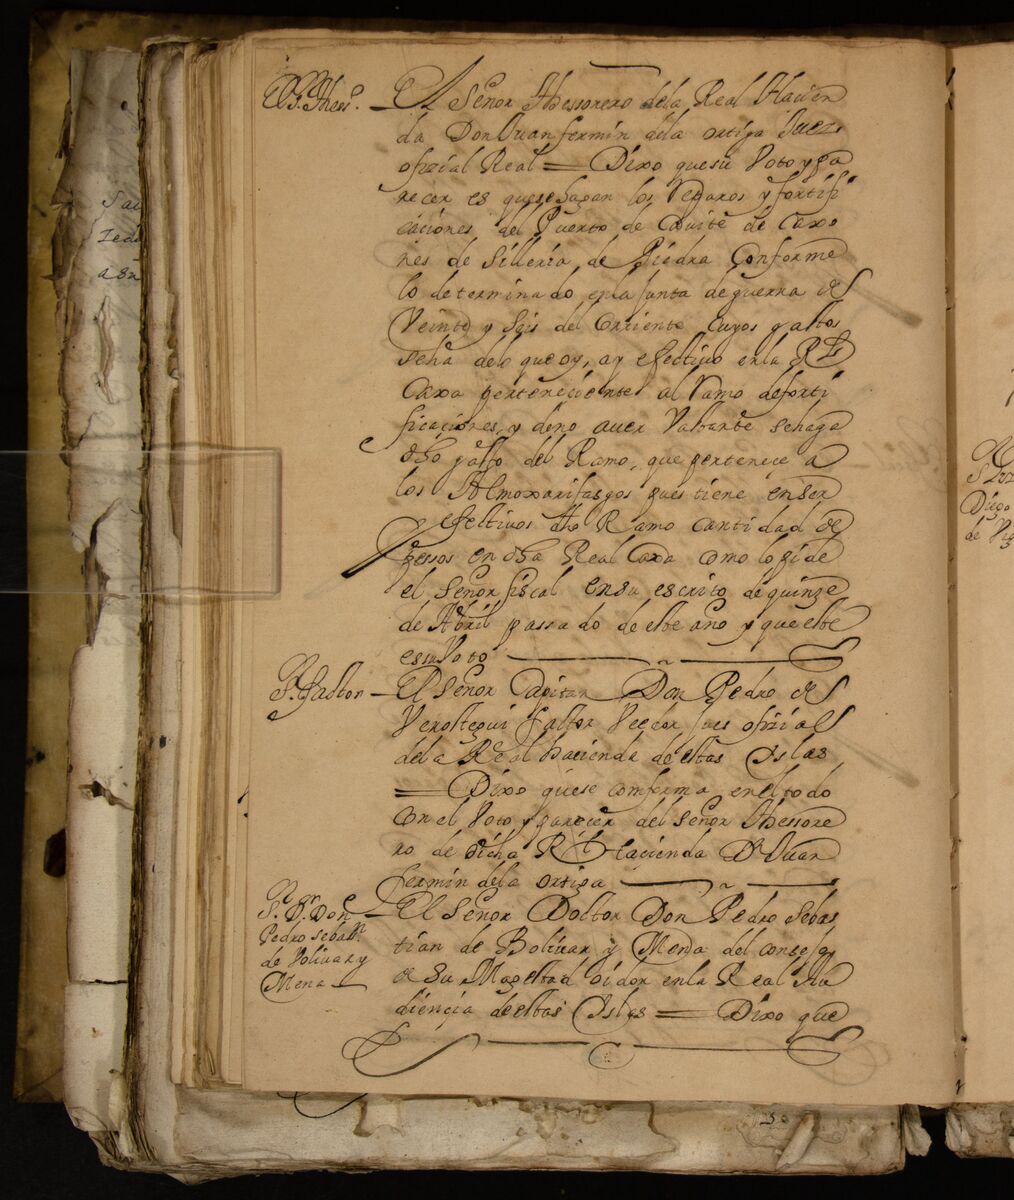 El S.r Thess.o — El Señor Thessorero dela Real Hacien
da Don Juan fermin dela ortiga Juez
ofizial Real = Dixo quesu Voto y pa
recer es quesehagan los Reparos y fortifi
caciones del Puerto de Cauite de Caxo
nes de Silleria de Piedra Conforme
lo determinado enla Junta deguerra del
Veinte y Seis del Corriente Cuyos gastos
seha delo queoy, ay efectiuo enla R.l
Caxa perteneciente al Ramo deforti
ficaciones, y deno auer Vastante sehaga
dho gasto del Ramo, que pertenece a
los Almoxarifasgos pues tiene enser
efectiuos dho Ramo cantidad de
pessos en dha Real Caxa como lo pide
el Señor fiscal ensu escrito dequinze
de Abril passado deeste año y queeste
essu Voto
S.r factor — El Señor Capitan Don Pedro de
Verastegui factor Veedor Jues ofizial
dela Real hacienda deestas Islas
= Dixo quese comforma en el todo
Con el Voto y parecer del Señor Thessore
ro de dicha R.l hacienda Dn Juan
fermin dela ortiga
S.r D.r Don
Pedro Sebast.n
de Boliuar y
Mena — El Señor Doctor Don Pedro Sebas
tian de Boliuar y Mena del consejo
de Su Magestad oidor enla Real Au
diencia deestas Islas = Dixo que